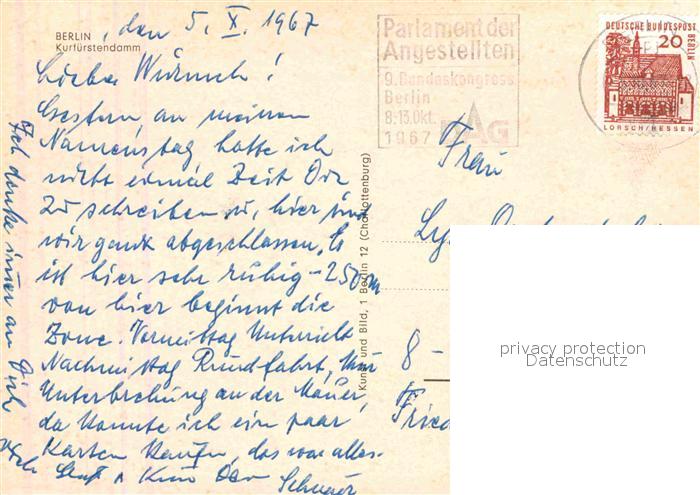 BERLIN
Kurfürstendamm
, den 5. X. 1967
Liebes Wurmuch!
Gestern an meinem
Namenstag hatte ich
nicht einmal Zeit Dir
zu schreiben, hier sind
wir ganz abgeschlossen, Es
ist hier sehr ruhig - 250m
von hier beginnt die
Zone. Vormittag Unterricht
Nachmittag Rundfahrt, nur
Unterbrechung an der Mauer,
da konnte ich ein paar
Karten kaufen, das war alles.
Gruß Kuss Dein
Ich denke immer an Dich
Kunst und Bild, 1 Berlin 12 (Charlottenburg)
Parlament der
Angestellten
9. Bundeskongress
Berlin
8.-13. Okt.
1967 DAG
DEUTSCHE BUNDESPOST BERLIN
20
LORSCH/HESSEN
Frau
8 -
Fried
privacy protection
Datenschutz